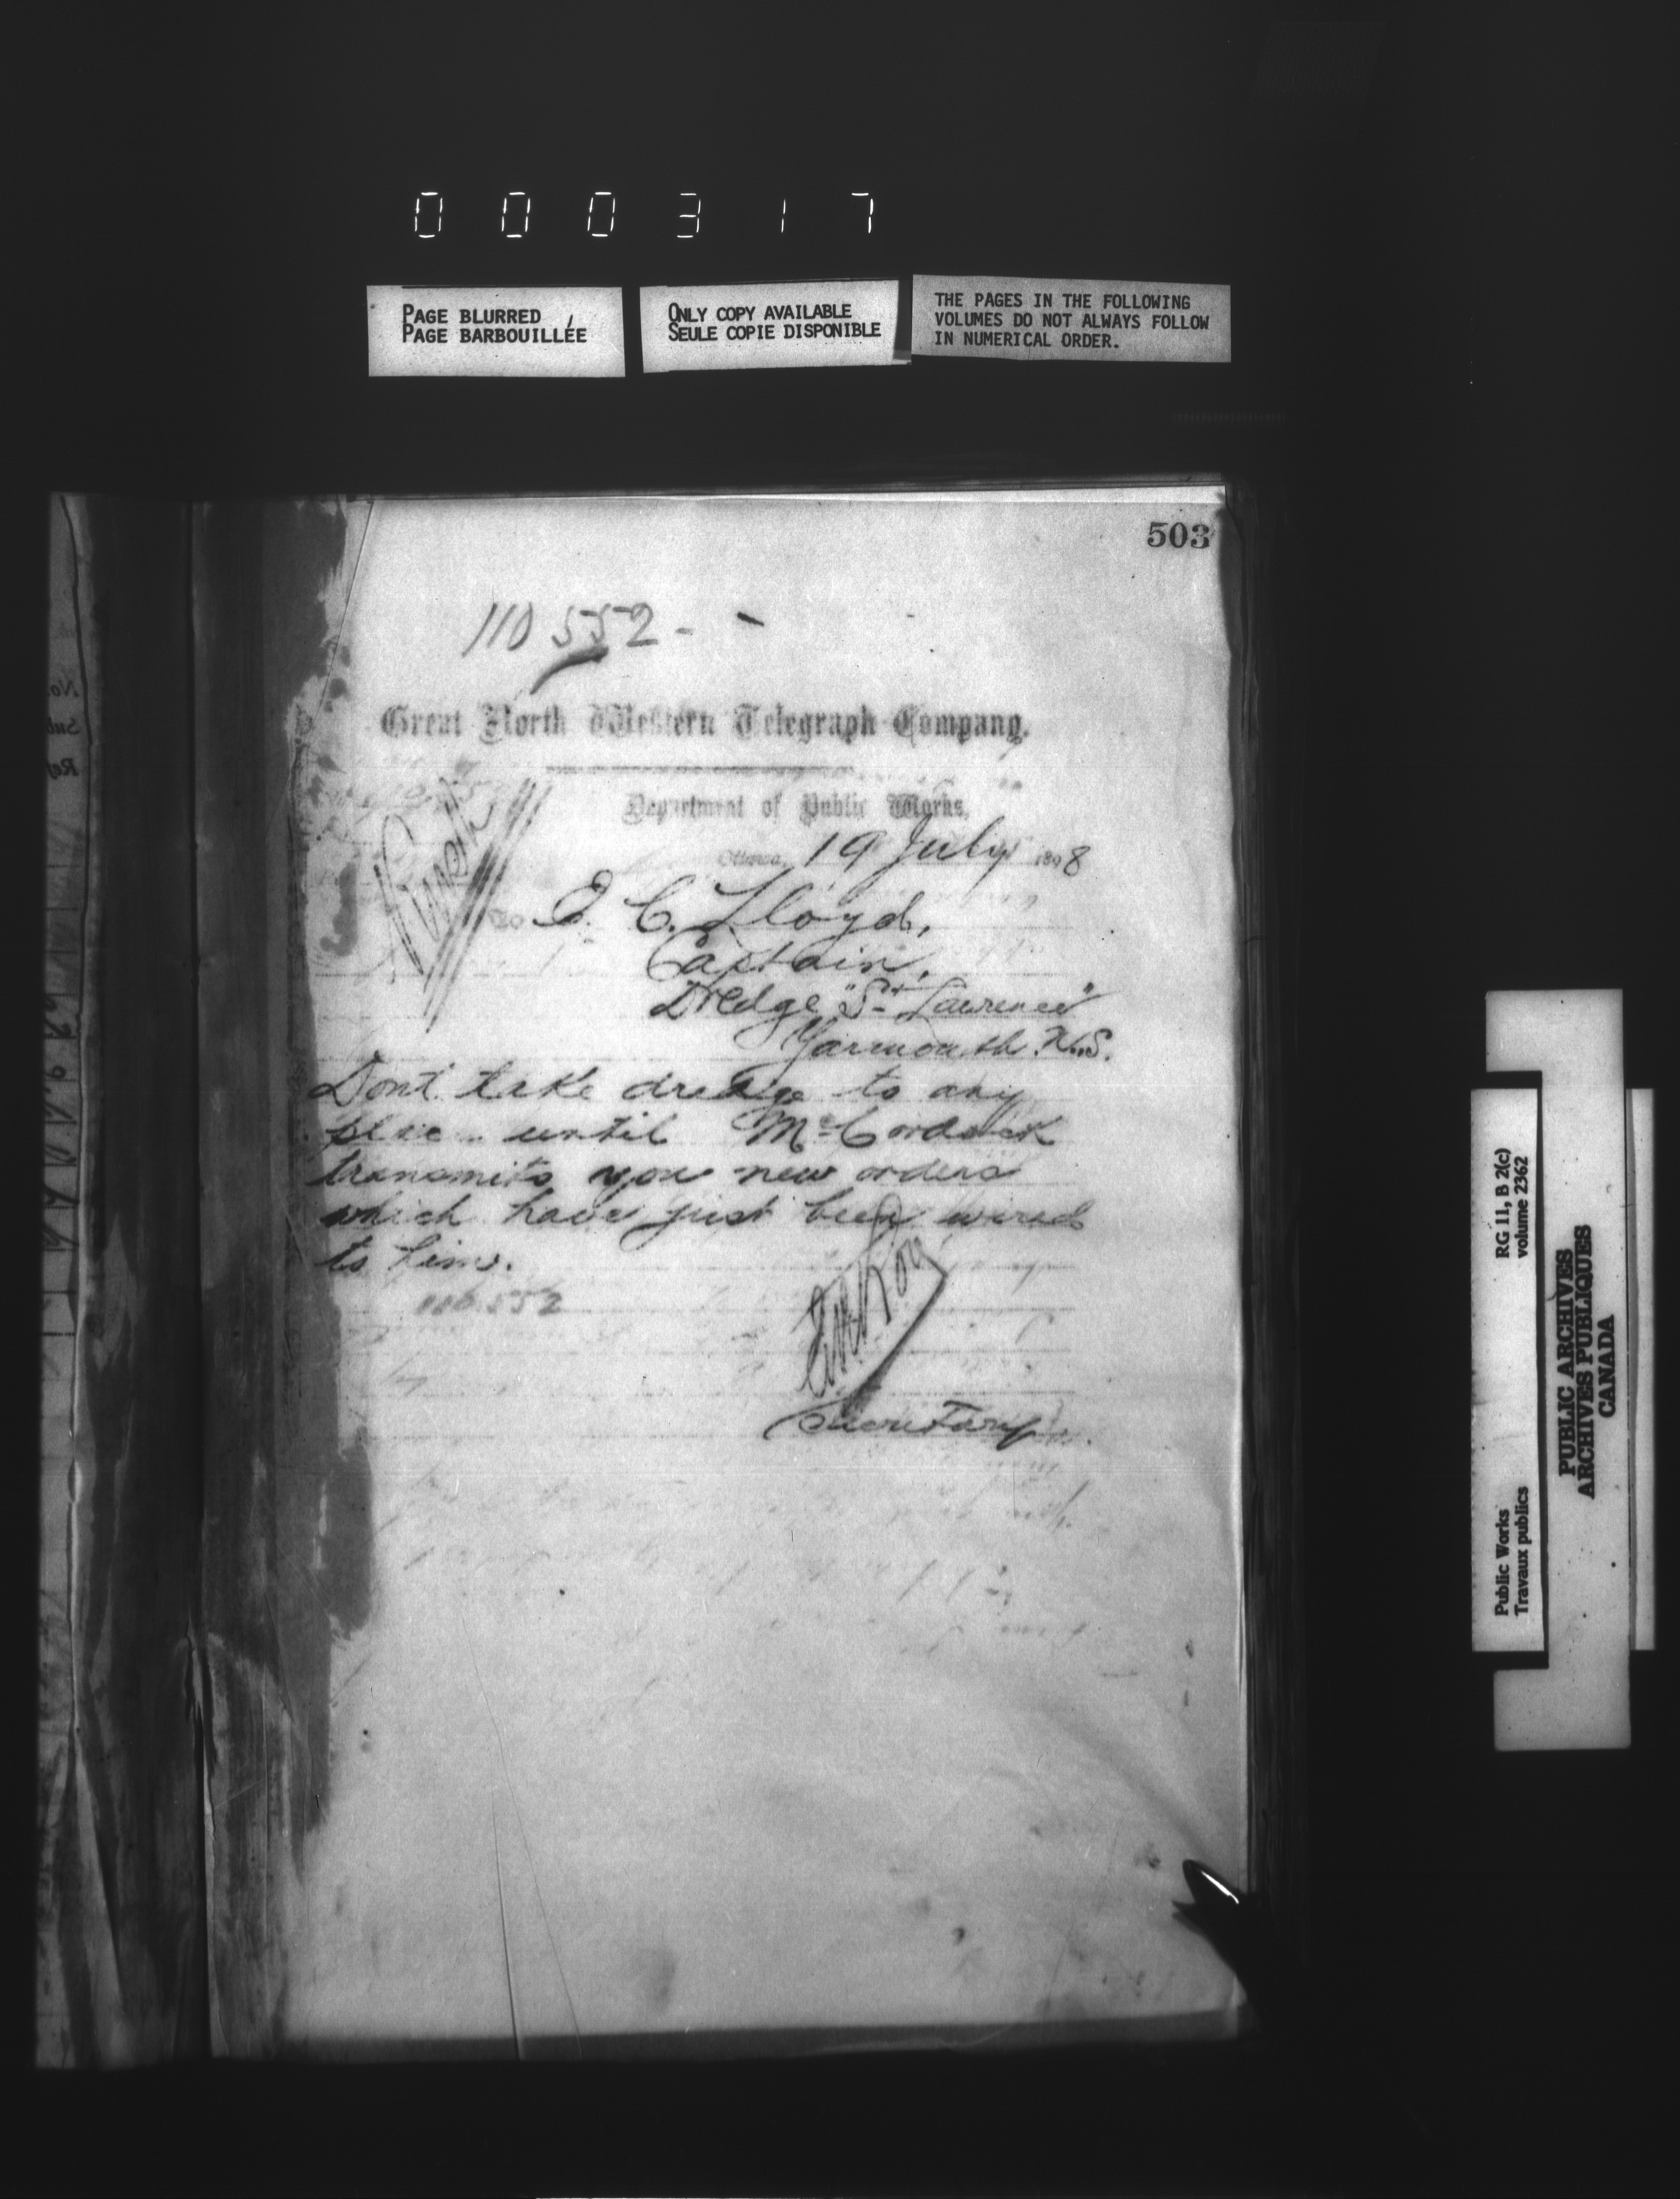 000317
PAGE BLURRED
PAGE BARBOUILLÉE
ONLY COPY AVAILABLE
SEULE COPIE DISPONIBLE
THE PAGES IN THE FOLLOWING
VOLUMES DO NOT ALWAYS FOLLOW
IN NUMERICAL ORDER.
503
110552-
Great North Western Telegraph Company.
Department of Public Works,
Ottawa, 19 July 1898
Rush
To E. C. Lloyd,
Captain,
Dredge "St Lawrence"
Yarmouth N.S.
Dont take dredge to any
place until
transmits you new orders
which have just been wired
to him.
Secretary.
RG 11, B 2(c)
volume 2362
Public Works
Travaux publics
PUBLIC ARCHIVES
ARCHIVES PUBLIQUES
CANADA